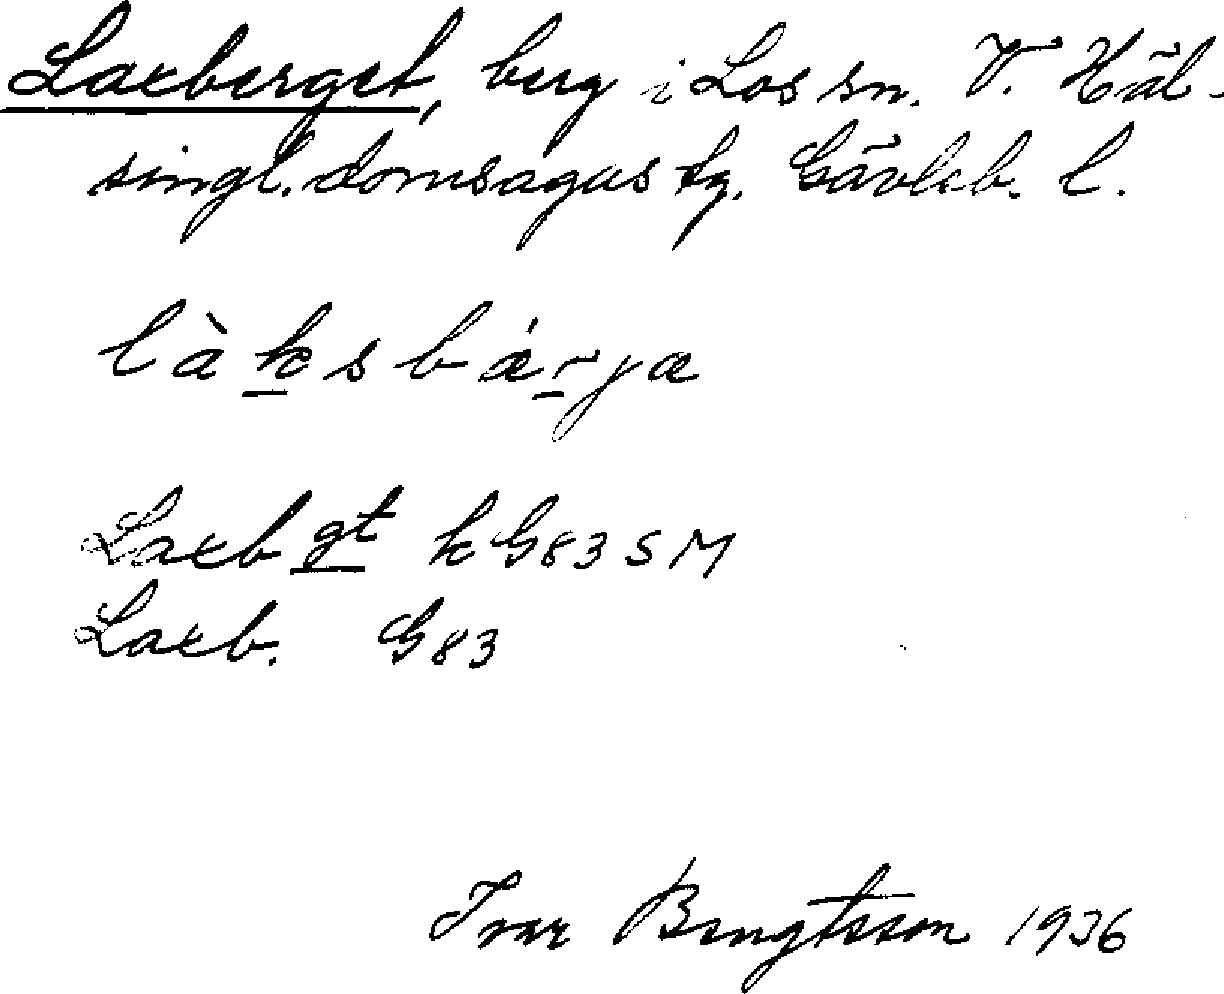 Laxberget, berg i Los sn. V. Häl-
singl. domsagas tg. Gävleb. l.
làksbǽrja
Laxbgt k G83SM
Laxb. G83
Ivar Bengtsson 1936